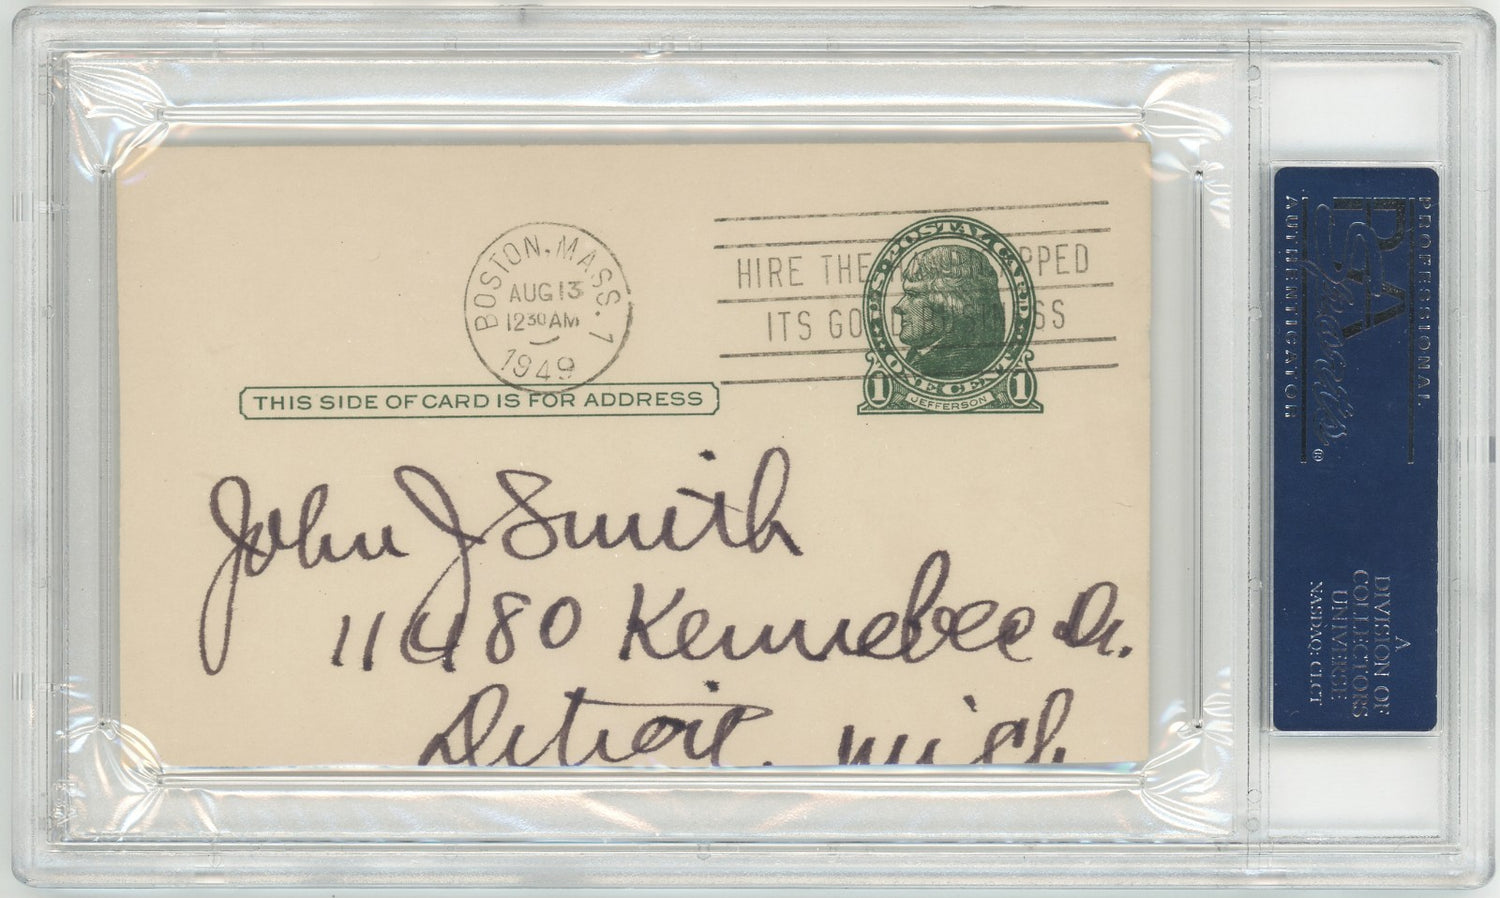 BOSTON, MASS. 1
AUG 13
12 30 AM
1949
HIRE THE HANDICAPPED
ITS GOOD BUSINESS
U.S. POSTAL CARD
ONE CENT
1 JEFFERSON 1
THIS SIDE OF CARD IS FOR ADDRESS
John J Smith
11480 Kennebec Dr.
Detroit, Mich
PROFESSIONAL
PSA
Sports
AUTHENTICATOR
A
DIVISION OF
COLLECTORS
UNIVERSE
NASDAQ: CLCT